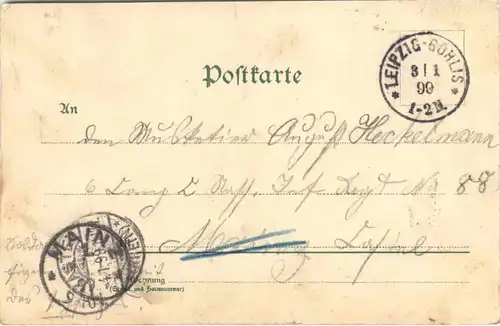 LEIPZIG-GOHLIS
3 | 1
99
1-2N.
Postkarte
An
den Musketier August Heckelmann
6 Comp 2 Nass. Inf Regt No 88
Mainz Castel
MAINZ
Wohnung
(Straße und Hausnummer)